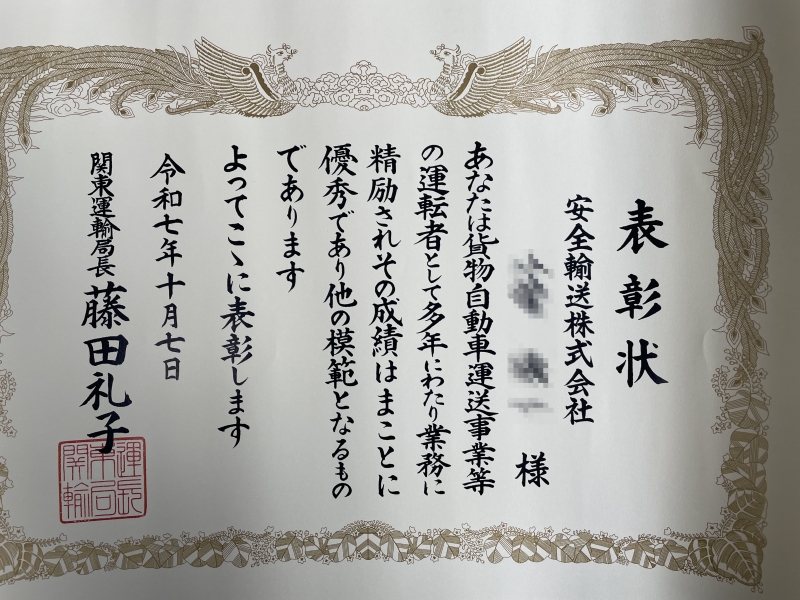 表彰状
安全輸送株式会社
様
あなたは貨物自動車運送事業等
の運転者として多年にわたり業務に
精励されその成績はまことに
優秀であり他の模範となるもの
であります
よってこゝに表彰します
令和七年十月七日
関東運輸局長 藤田礼子